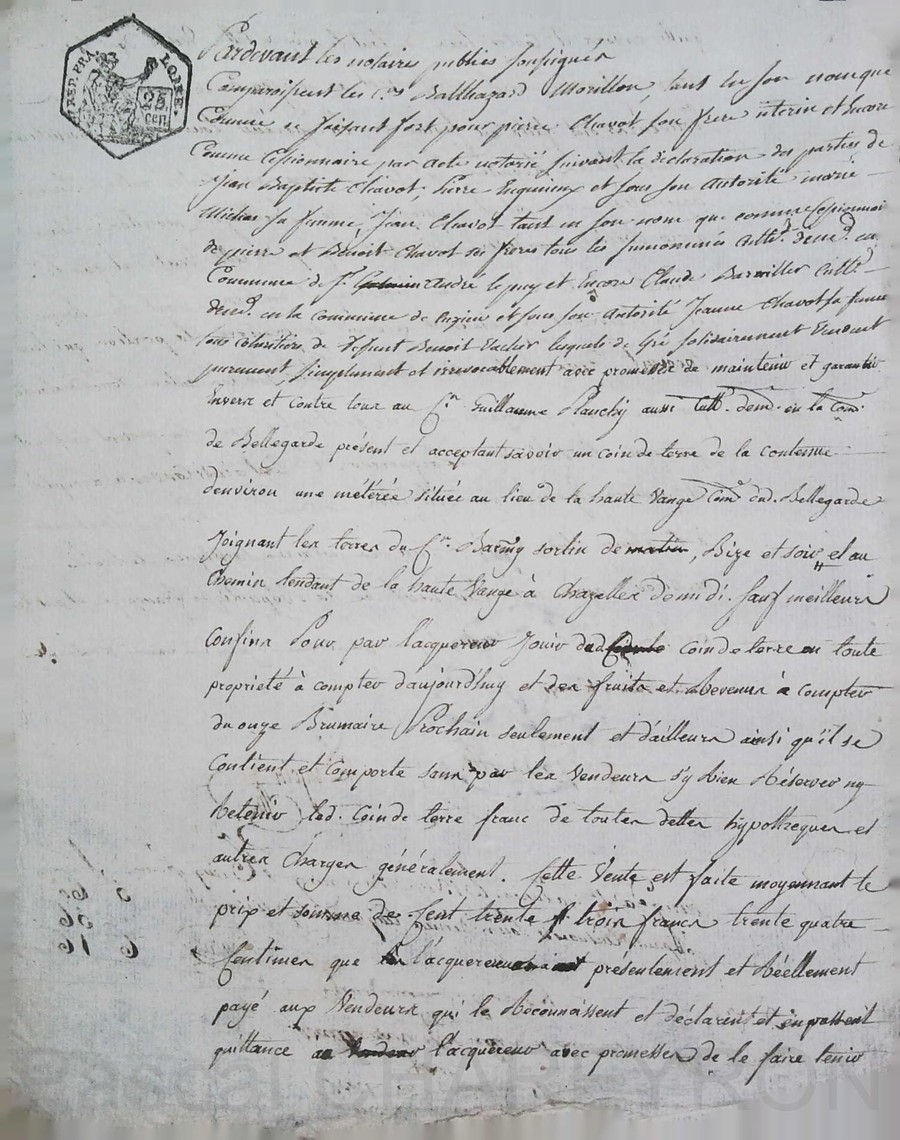 REP. FRA. LOIRE
25 cen.
Pardevant les notaires publics soussignés
Comparaissent les c.ns Balthazard Morillon, tant en son nom que
Comme se faisant fort pour pierre Chavot son frere uterin et Encore
Comme Cessionnaire par acte notarié suivant la déclaration des parties de
Jean Baptiste Chavot, et sous son Autorité marie
sa femme, Jean Chavot tant en son nom que comme Cessionnai
de pierre et Benoit Chavot ses freres tous les susnommés Cultt.rs dem.t en
Commune de S.t andré le puy et Encore Claude Barriller Cultt.r
dem.t en la commune de Cuzieu et sous son Autorité Jeanne Chavot sa femme
tous Cohéritiers de deffunt Benoit lesquels de Gré solidairement Vendent
purement, simplement et irrevocablement avec promesse de maintenir et garantir
Envers et contre tous au C.n Guillaume Planchy aussi Cult.r dem.t en la Com.e
de Bellegarde présent et acceptant savoir un coin de terre de la contenue
denviron une métérée située au lieu de la haute Vange Com.e dud. Bellegarde
Joignant les terres du C.n Barmy sorlin de matin, Bize et soir et au
Chemin tendant de la haute Vange à Chazelles de midi. sauf meilleurs
Confins Pour par l'acquereur Jouir dud coin de terre en toute
propriété à compter d'aujourd'huy et des fruits et Revenus à compter
du onze Brumaire Prochain seulement et d'ailleurs ainsi qu'il se
Contient et comporte sans par les Vendeurs s'y Rien Réserver ny
Retenir led. Coin de terre franc de toutes dettes hypotheques et
autres Charges généralement. Cette Vente est faite moyennant le
prix et somme de Cent trente trois francs trente quatre
Centimes que l'acquereur a présentement et Réellement
payé aux Vendeurs qui le Reconnaissent et déclarent et en passent
quittance l'acquereur avec promesse de le faire tenir